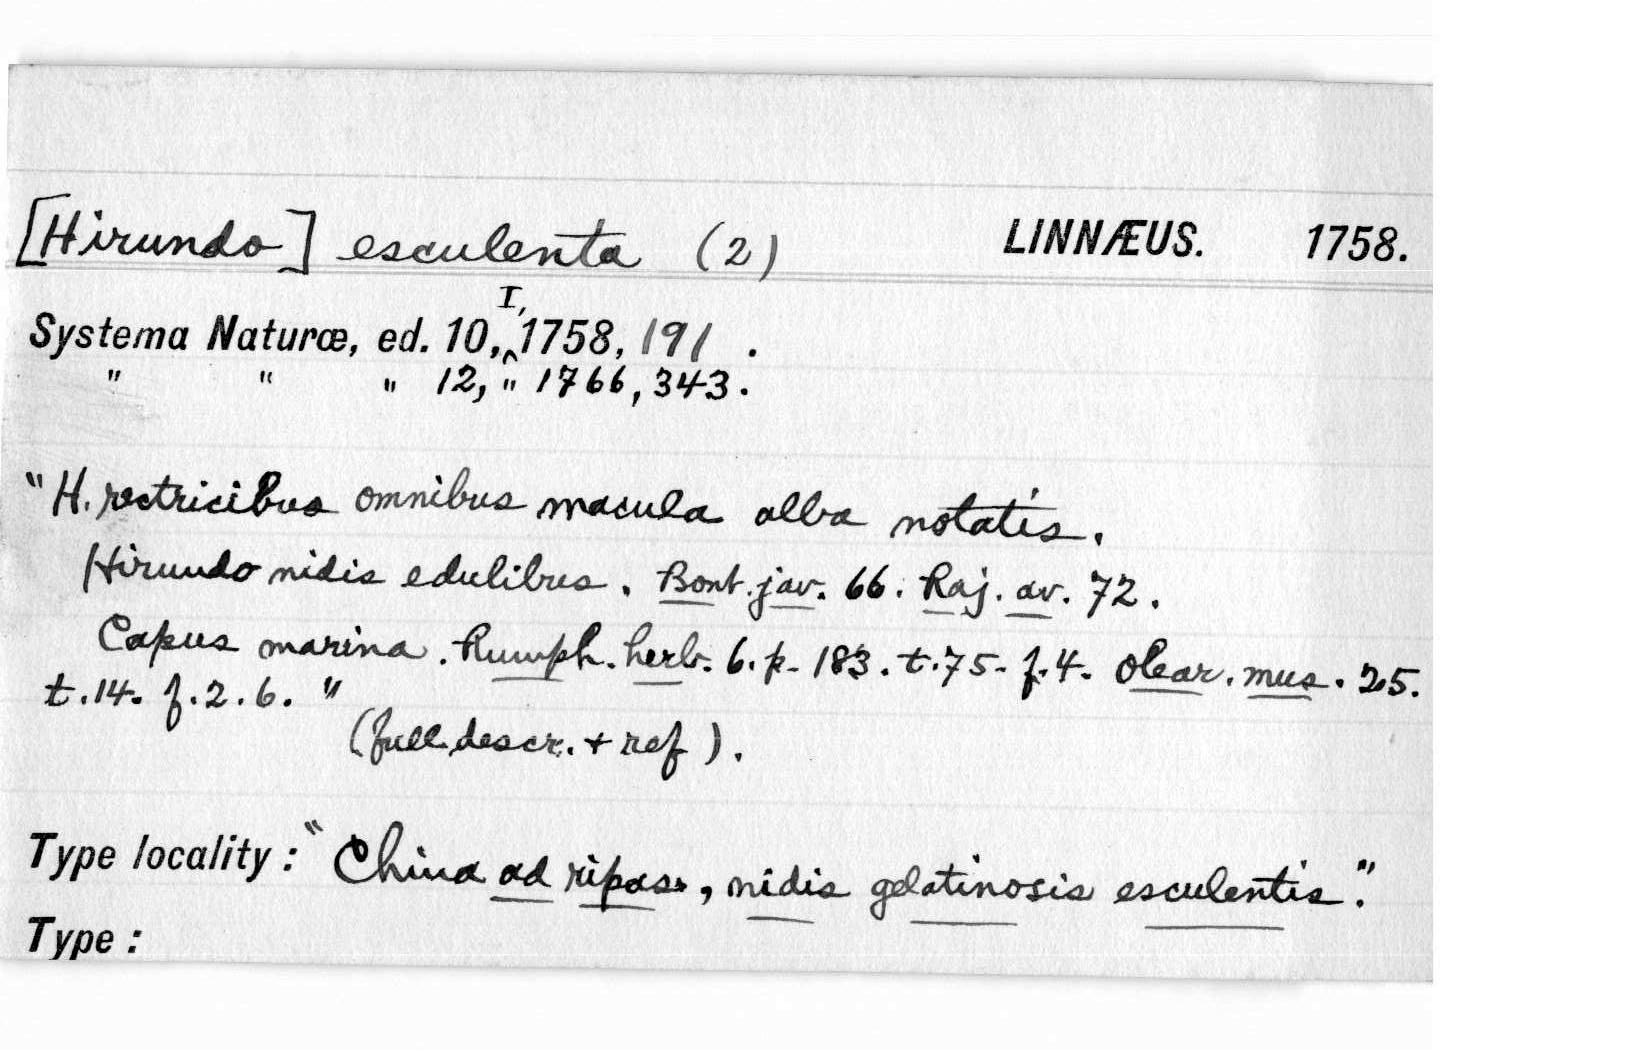 [Hirundo] esculenta (2) LINNÆUS. 1758.
Systema Naturæ, ed. 10, I, 1758, 191 .
" " " 12, " 1766, 343.
"H. rectricibus omnibus macula alba notatis.
Hirundo nidis edulibus. Bont. jav. 66. Raj. av. 72.
Capus marina. Rumph. herb. 6. p. 183. t. 75. f. 4. Olear. mus. 25.
t. 14. f. 2. 6. "
(full descr. + ref).
Type locality: "China ad ripas, nidis gelatinosis esculentis."
Type: